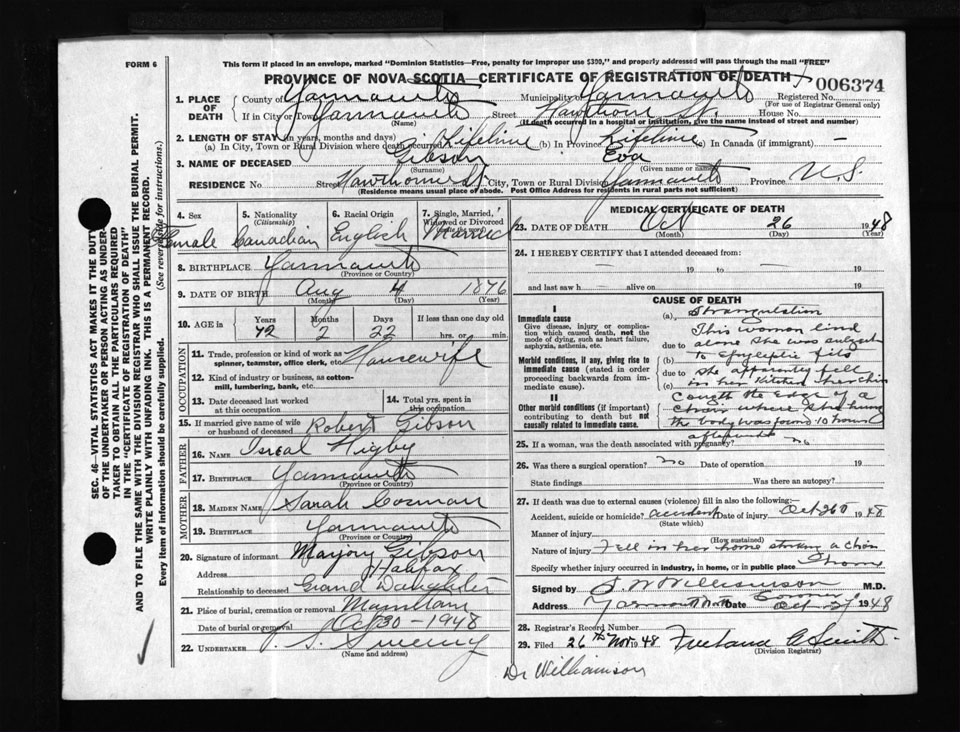 This form if placed in an envelope, marked "Dominion Statistics—Free, penalty for improper use $300," and properly addressed will pass through the mail "FREE"
FORM 6
PROVINCE OF NOVA SCOTIA—CERTIFICATE OF REGISTRATION OF DEATH
006374
1. PLACE OF DEATH
County of Yarmouth Municipality of Yarmouth Registered No.
(For use of Registrar General only)
If in City or Town Yarmouth Street Hawthorn St. House No.
(Name) (If death occurred in a hospital or institution, give the name instead of street and number)
2. LENGTH OF STAY (in years, months and days)
(a) In City, Town or Rural Division where death occurred Lifetime (b) In Province Lifetime (c) In Canada (if immigrant) —
3. NAME OF DECEASED Gibson Eva
(Surname) (Given name or names)
RESIDENCE No. Street Hawthorne St City, Town or Rural Division Yarmouth Province N.S.
(Residence means usual place of abode. Post Office Address for residents in rural parts not sufficient)
4. Sex
Female
5. Nationality
(Citizenship)
Canadian
6. Racial Origin
English
7. Single, Married, Widowed or Divorced
Married
8. BIRTHPLACE Yarmouth
(Province or Country)
9. DATE OF BIRTH Aug 4 1876
(Month) (Day) (Year)
10. AGE in Years Months Days If less than one day old
72 2 22 hrs. or min.
OCCUPATION
11. Trade, profession or kind of work as spinner, teamster, office clerk, etc. Housewife
12. Kind of industry or business, as cotton-mill, lumbering, bank, etc.
13. Date deceased last worked at this occupation
14. Total yrs. spent in this occupation
15. If married give name of wife or husband of deceased Robert Gibson
FATHER
16. NAME Isreal Higby
17. BIRTHPLACE Yarmouth
(Province or Country)
MOTHER
18. MAIDEN NAME Sarah Cosman
19. BIRTHPLACE Yarmouth
(Province or Country)
20. Signature of informant Marjory Gibson
Address Halifax
Relationship to deceased Grand Daughter
21. Place of burial, cremation or removal
Date of burial or removal 30 - 1948
22. UNDERTAKER Sweeny
(Name and address)
MEDICAL CERTIFICATE OF DEATH
23. DATE OF DEATH Oct 26 1948
(Month) (Day) (Year)
24. I HEREBY CERTIFY that I attended deceased from:
— 19 to — 19
and last saw h — alive on — 19
CAUSE OF DEATH
I
Immediate cause
Give disease, injury or complication which caused death, not the mode of dying, such as heart failure, asphyxia, asthenia, etc.
Morbid conditions, if any, giving rise to immediate cause (stated in order proceeding backwards from immediate cause).
II
Other morbid conditions (if important) contributing to death but not causally related to immediate cause.
(a) Strangulation
This woman lived
due to alone she was subject
(b) to epyleptic fits
due to she apparently fell
(c) in her kitchen her chin
caught the edge of a
chair where she hung
the body was found 10 hours
afterwards
25. If a woman, was the death associated with pregnancy? no
26. Was there a surgical operation? no Date of operation 19
State findings Was there an autopsy?
27. If death was due to external causes (violence) fill in also the following:—
Accident, suicide or homicide? accident Date of injury Oct 26 1948
(State which)
Manner of injury
(How sustained)
Nature of injury Fell in her home striking a chair
Specify whether injury occurred in industry, in home, or in public place Home
Signed by Williamson M.D.
Coroner
Address Yarmouth North Date Oct 27 1948
28. Registrar's Record Number
29. Filed 26th Nov 1948 Smith
(Division Registrar)
Dr Williamson
SEC. 46—VITAL STATISTICS ACT MAKES IT THE DUTY OF THE UNDERTAKER OR PERSON ACTING AS UNDERTAKER TO OBTAIN ALL THE PARTICULARS REQUIRED IN THE "CERTIFICATE OF REGISTRATION OF DEATH" AND TO FILE THE SAME WITH THE DIVISION REGISTRAR WHO SHALL ISSUE THE BURIAL PERMIT.
WRITE PLAINLY WITH UNFADING INK. THIS IS A PERMANENT RECORD.
Every item of information should be carefully supplied. (See reverse side for instructions.)